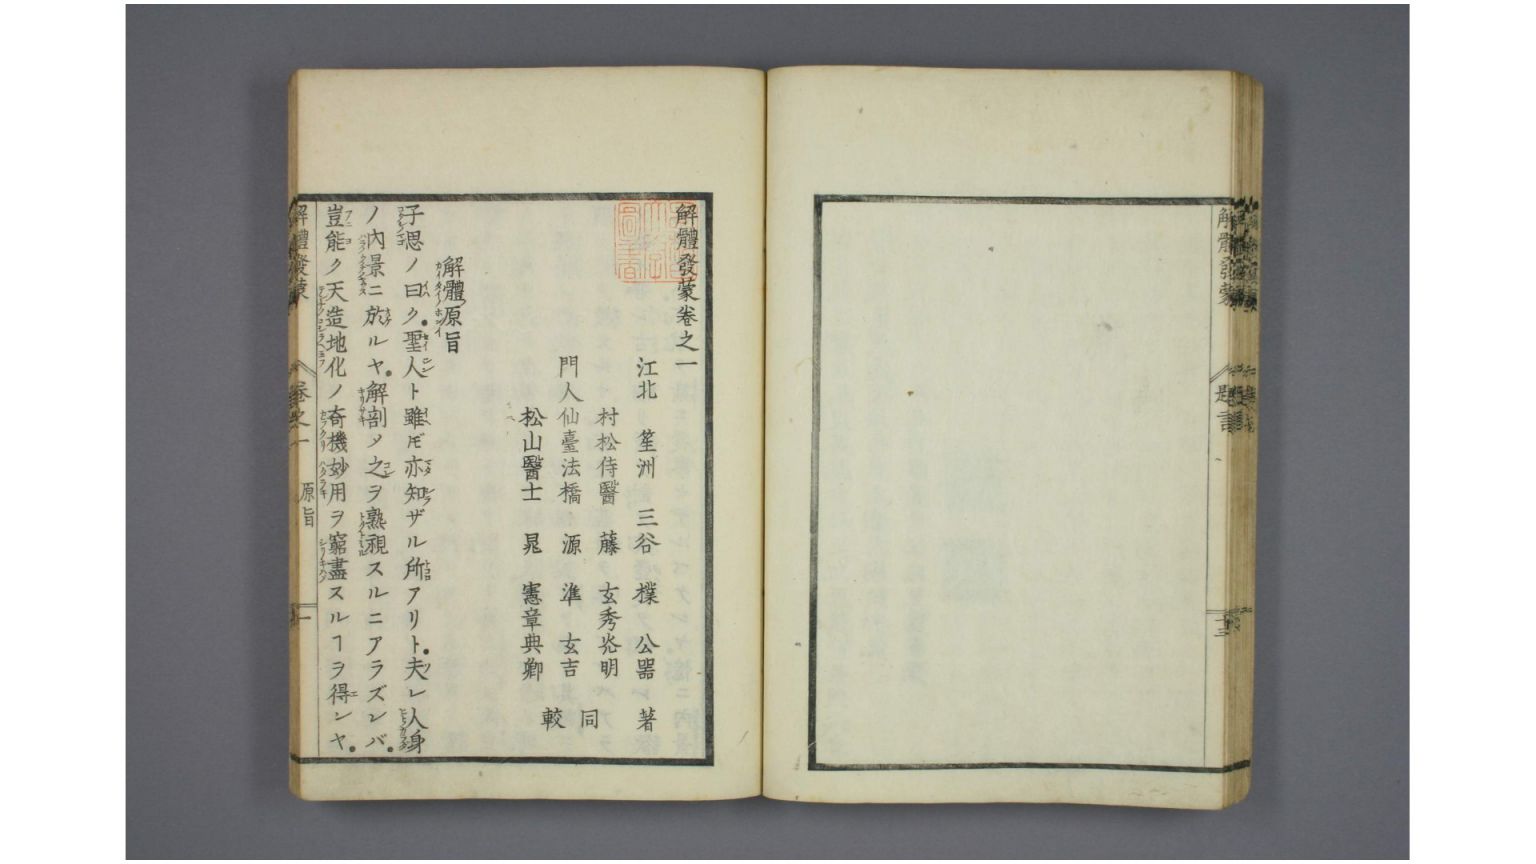 解體發蒙
題言
十三
解體發蒙卷之一
江北 笙洲 三谷 樸 公器 著
村松侍醫 藤 玄秀炎明
門人仙臺法橋 源 準 玄吉
松山醫士 晁 憲章典卿
同較
解體原旨
子思ノ曰ク聖人ト雖モ亦知ザル所アリト夫レ人身
ノ內景ニ於ルヤ解剖ノ之ヲ熟視スルニアラズンバ
豈能ク天造地化ノ奇機妙用ヲ窮盡スルヿヲ得ンヤ
解體發蒙
卷之一
原旨
一